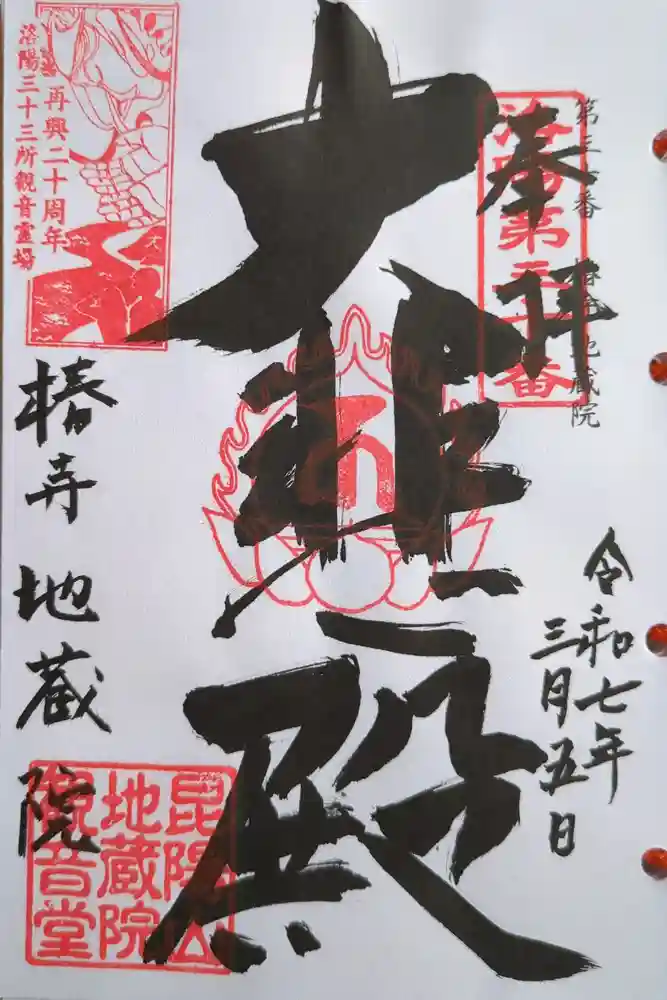 第三十番 椿寺地蔵院
洛陽第三十番
奉拝
令和七年
三月五日
大悲殿
再興二十周年
洛陽三十三所観音霊場
椿寺 地蔵院
昆陽山
地蔵院
観音堂